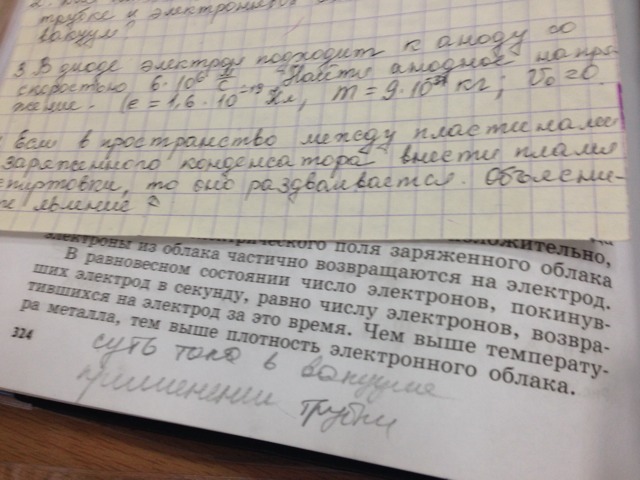 трубке и электронно
вакуум?
3. В диоде электрон подходит к аноду со
скоростью 6·10⁶ м/с. Найти анодное напря-
жение. (e = 1,6·10⁻¹⁹ Кл, m = 9·10⁻³¹ кг; V₀=0.
Если в пространство между пластинами
заряженного конденсатора внести пламя
спиртовки, то оно раздваивается. Объясни-
те явление?
положительно,
электрического поля заряженного облака
электроны из облака частично возвращаются на электрод.
В равновесном состоянии число электронов, покинув-
ших электрод в секунду, равно числу электронов, возвра-
тившихся на электрод за это время. Чем выше температу-
ра металла, тем выше плотность электронного облака.
324
суть тока в вакууме
применении трубки